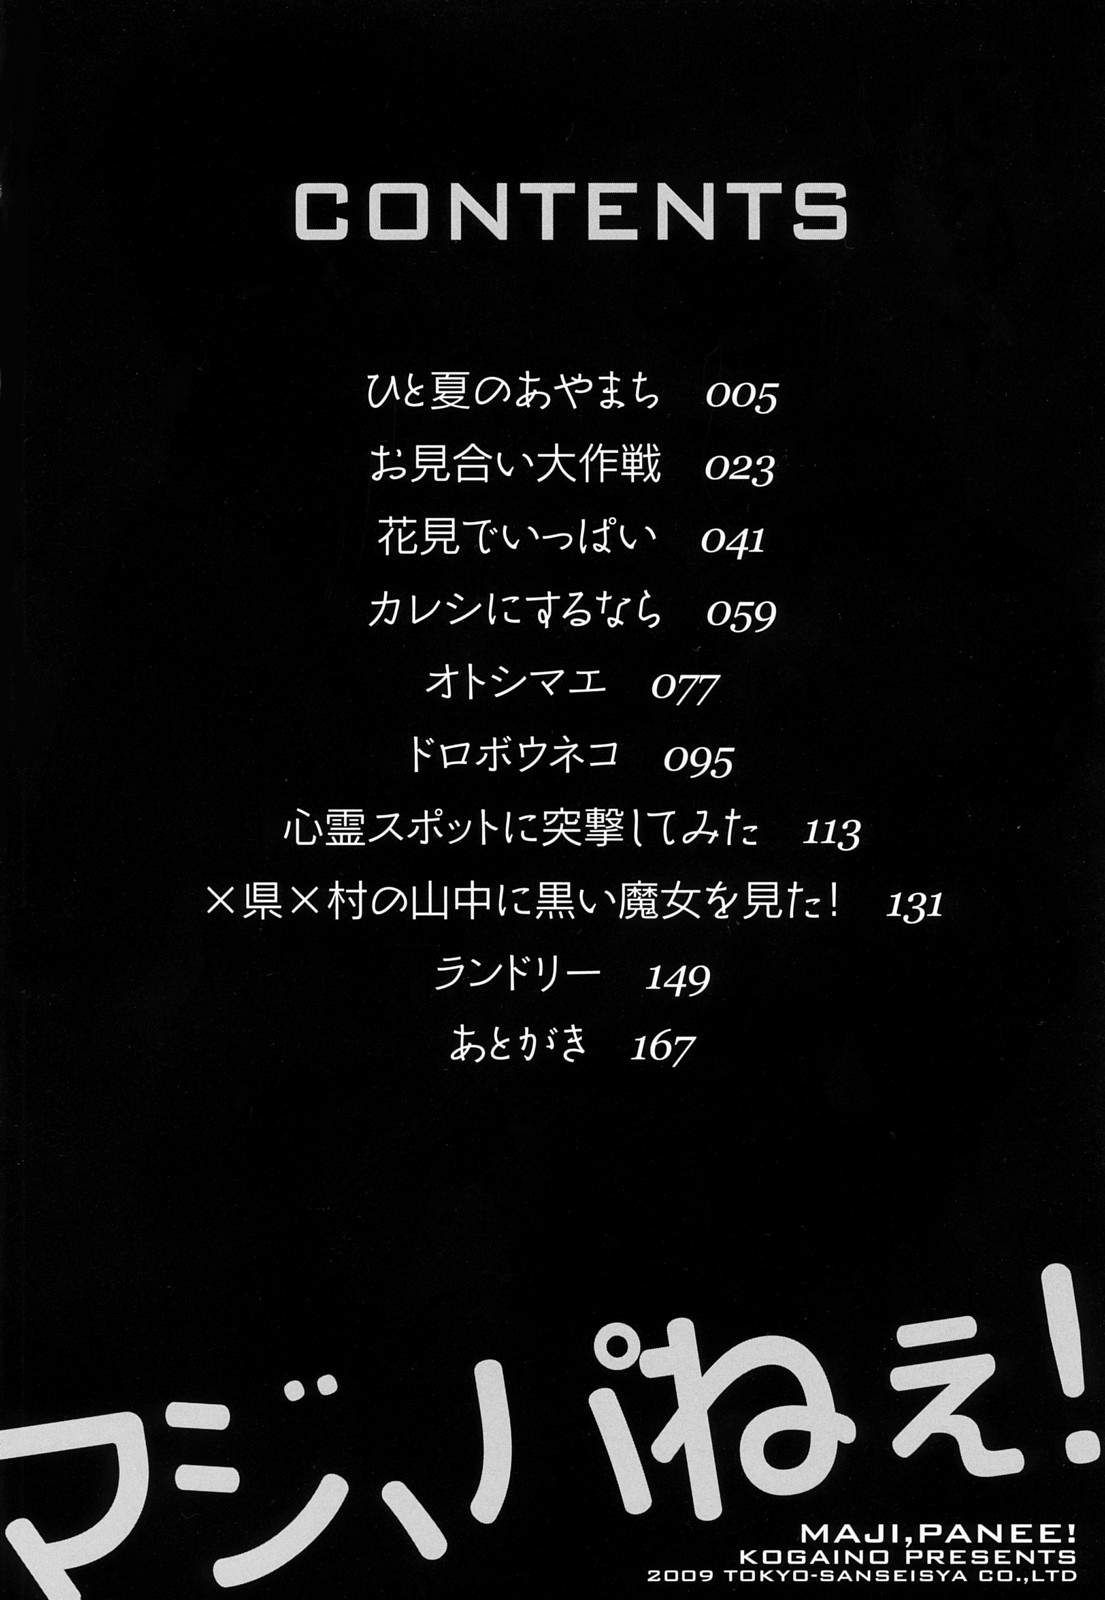 CONTENTS
ひと夏のあやまち 005
お見合い大作戦 023
花見でいっぱい 041
カレシにするなら 059
オトシマエ 077
ドロボウネコ 095
心霊スポットに突撃してみた 113
×県×村の山中に黒い魔女を見た! 131
ランドリー 149
あとがき 167
マジ、パねぇ!
MAJI,PANEE!
KOGAINO PRESENTS
2009 TOKYO-SANSEISYA CO.,LTD